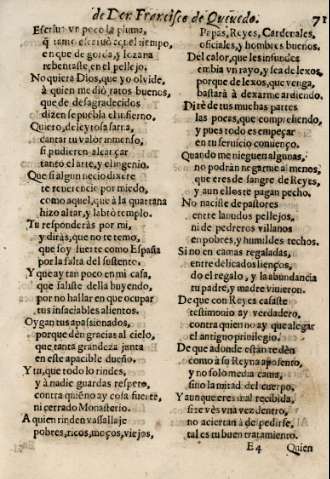 de Don Francisco de Queuedo. 71
Escriuì vn poco la pluma,
q̃ tanto escriuiò aquel tiempo,
en que de gorda, y lozana
rebentaste, en el pellejo.
No quiera Dios, que yo olvide,
à quien me diò ratos buenos,
que de desagradecidos
dizen se puebla el infierno.
Quiero, deleytosa sarna,
cantar tu valor inmenso,
si pudieren alcançar
tanto el arte, y el ingenio.
Que si algun necio dixere
te reuerencie por miedo,
como aquel, que à la quartana
hizo altar, y labrò templo.
Tu responderàs por mi,
y diràs, que no te temo,
que soy fuerte como España
por la falta del sustento.
Y que ay tan poco en mi casa,
que saliste della huyendo,
por no hallar en que ocupar
tus insaciables alientos.
Oygan tus apasionados,
porque dèn gracias al cielo,
que tanta grandeza junta
en este apacible dueño.
Y tu, que todo lo rindes,
y à nadie guardas respeto,
contra quiẽ no ay cosa fuerte,
ni cerrado Monasterio.
A quien rinden vassallaje
pobres, ricos, moços, viejos,
Papas, Reyes, Cardenales,
oficiales, y hombres buenos.
Del calor, que les infundes
embia vn rayo, y sea de lexos,
porque de lexos, que venga,
bastarà à dexarme ardiendo.
Dirè de tus muchas partes
las pocas, que comprehendo,
y pues todo es empeçar
en tu seruicio comienço.
Quando me nieguen algunas,
no podràn negarme al menos,
que eres de sangre de Reyes,
y aun ellos te pagan pecho.
No naciste de pastores
entre lanudos pellejos,
ni de pedreros villanos
en pobres, y humildes techos.
Si no en camas regaladas,
entre delicados lienços,
do el regalo, y la abundancia
tu padre, y madre viuieron.
De que con Reyes casaste
testimonio ay verdadero,
contra quien no ay que alegar
el antiguo priuilegio.
De que adonde estàn te dèn
como à su Reyna aposento,
y no solo media cama,
sino la mitad del cuerpo.
Y aunque eres mal recibida,
si te vès vna vez dentro,
no aciertan à despedirse,
tal es tu buen tratamiento.
E4 Quien